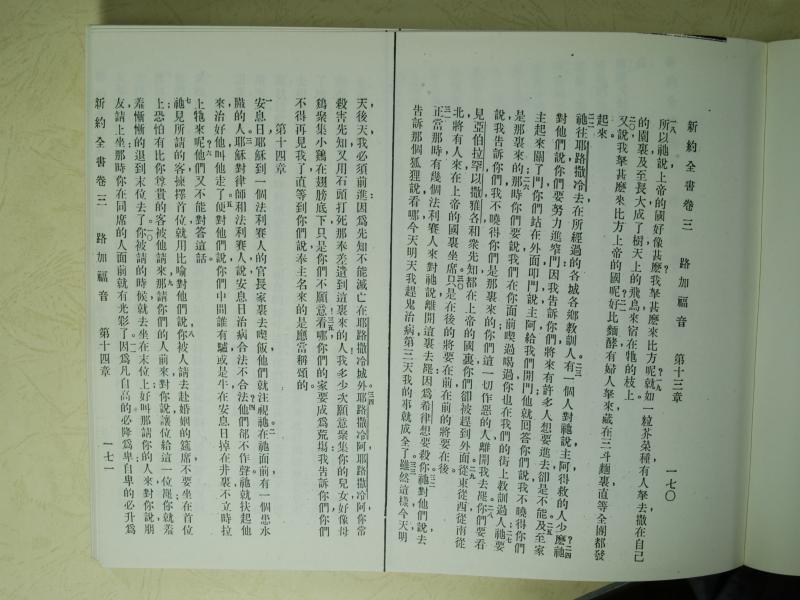 新約全書卷三 路加福音 第十三章 一七〇
所以祂說上帝的國好像甚麼我拏甚麼來比方呢就如一粒芥菜種有人拏去撒在自己
的園裏及至長大成了樹天上的飛鳥來宿在牠的枝上
又說我拏甚麼來比方上帝的國呢好比麵酵有婦人拏來藏在三斗麵裏直等全團都發
起來
祂往耶路撒冷去在所經過的各城各鄉教訓人有一個人對祂說主阿得救的人少麼祂
對他們說你們要努力進窄門因我告訴你們將來有許多人想要進去卻是不能及至家
主起來關了門你們站在外面叩門說主阿給我們開門他就回答你們說我不曉得你們
是那裏來的那時你們要說我們在你面前喫過喝過你也在我們的街上教訓過人祂要
說我告訴你們我不曉得你們是那裏來的你們這一切作惡的人離開我去罷你們要看
見亞伯拉罕以撒雅各和衆先知都在上帝的國裏你們卻被趕到外面從東從西從南從
北將有人來在上帝的國裏坐席只是在後的將要在前在前的將要在後
正當那時有幾個法利賽人來對祂說離開這裏去罷因爲希律想要殺你祂對他們說去
告訴那個狐狸說看哪今天明天我趕鬼治病第三天我的事就成全了雖然這樣今天明
天後天我必須前進因爲先知不能滅亡在耶路撒冷城外耶路撒冷阿耶路撒冷阿你常
殺害先知又用石頭打死那奉差遣到這裏來的人我多少次願意聚集你的兒女好像母
鷄聚集小鷄在翅膀底下只是你們不願意看哪你們的家要成爲荒塲我告訴你們你們
不得再見我了直等到你們說奉主名來的是應當稱頌的
第十四章
安息日耶穌到一個法利賽人的官長家裏去喫飯他們就注視祂在祂面前有一個患水
臌的人耶穌對律師和法利賽人說安息日治病合不合法他們都不作聲祂就扶起他
來治好他叫他走了便對他們說你們中間誰有驢或是牛在安息日掉在井裏不立時拉
上牠來呢他們又不能對答這話
祂見所請的客揀擇首位就用比喻對他們說你被人請去赴婚姻的筵席不要坐在首位
上恐怕有比你尊貴的客被他請來那請你們的人前來對你說讓位給這一位罷你就羞
羞慚慚的退到末位去了你被請的時候就去坐在末位上好叫那請你的人來對你說朋
友請上坐那時你在同席的人面前就有光彩了因爲凡自高的必降爲卑自卑的必升爲
新約全書卷三 路加福音 第十四章 一七一